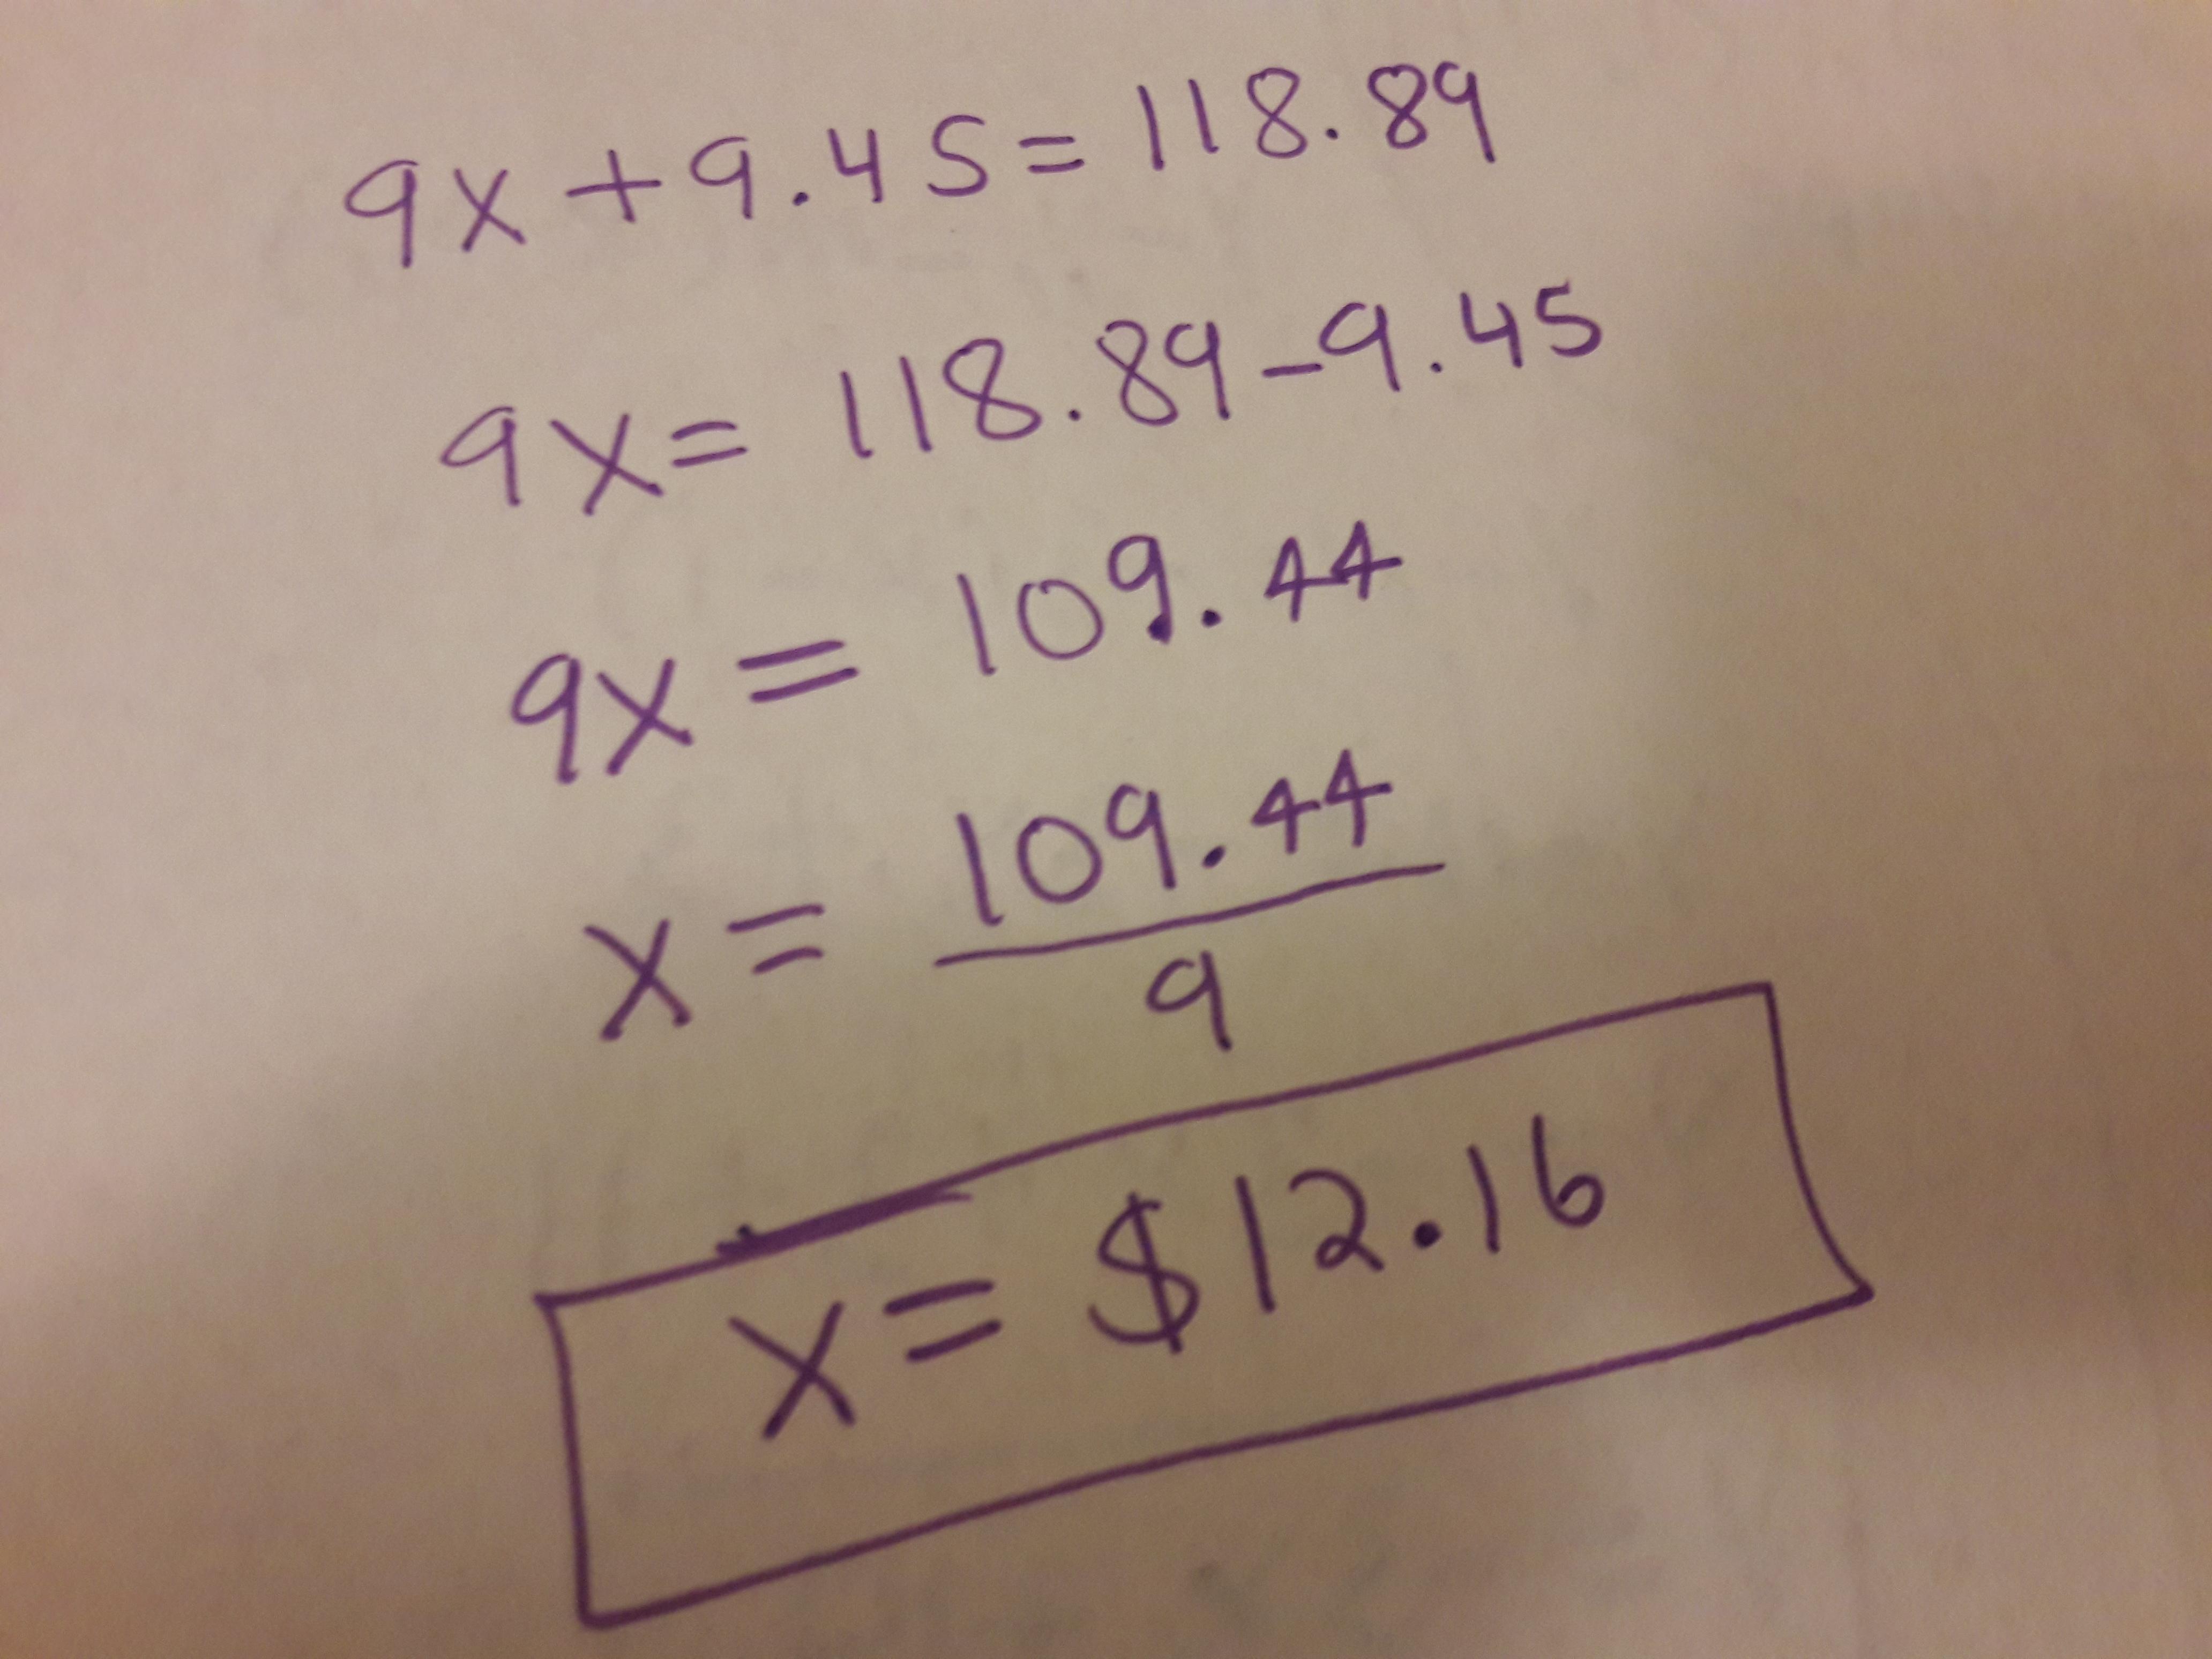 9x + 9.45 = 118.89
9x = 118.89 - 9.45
9x = 109.44
x = 109.44
9
x = $12.16